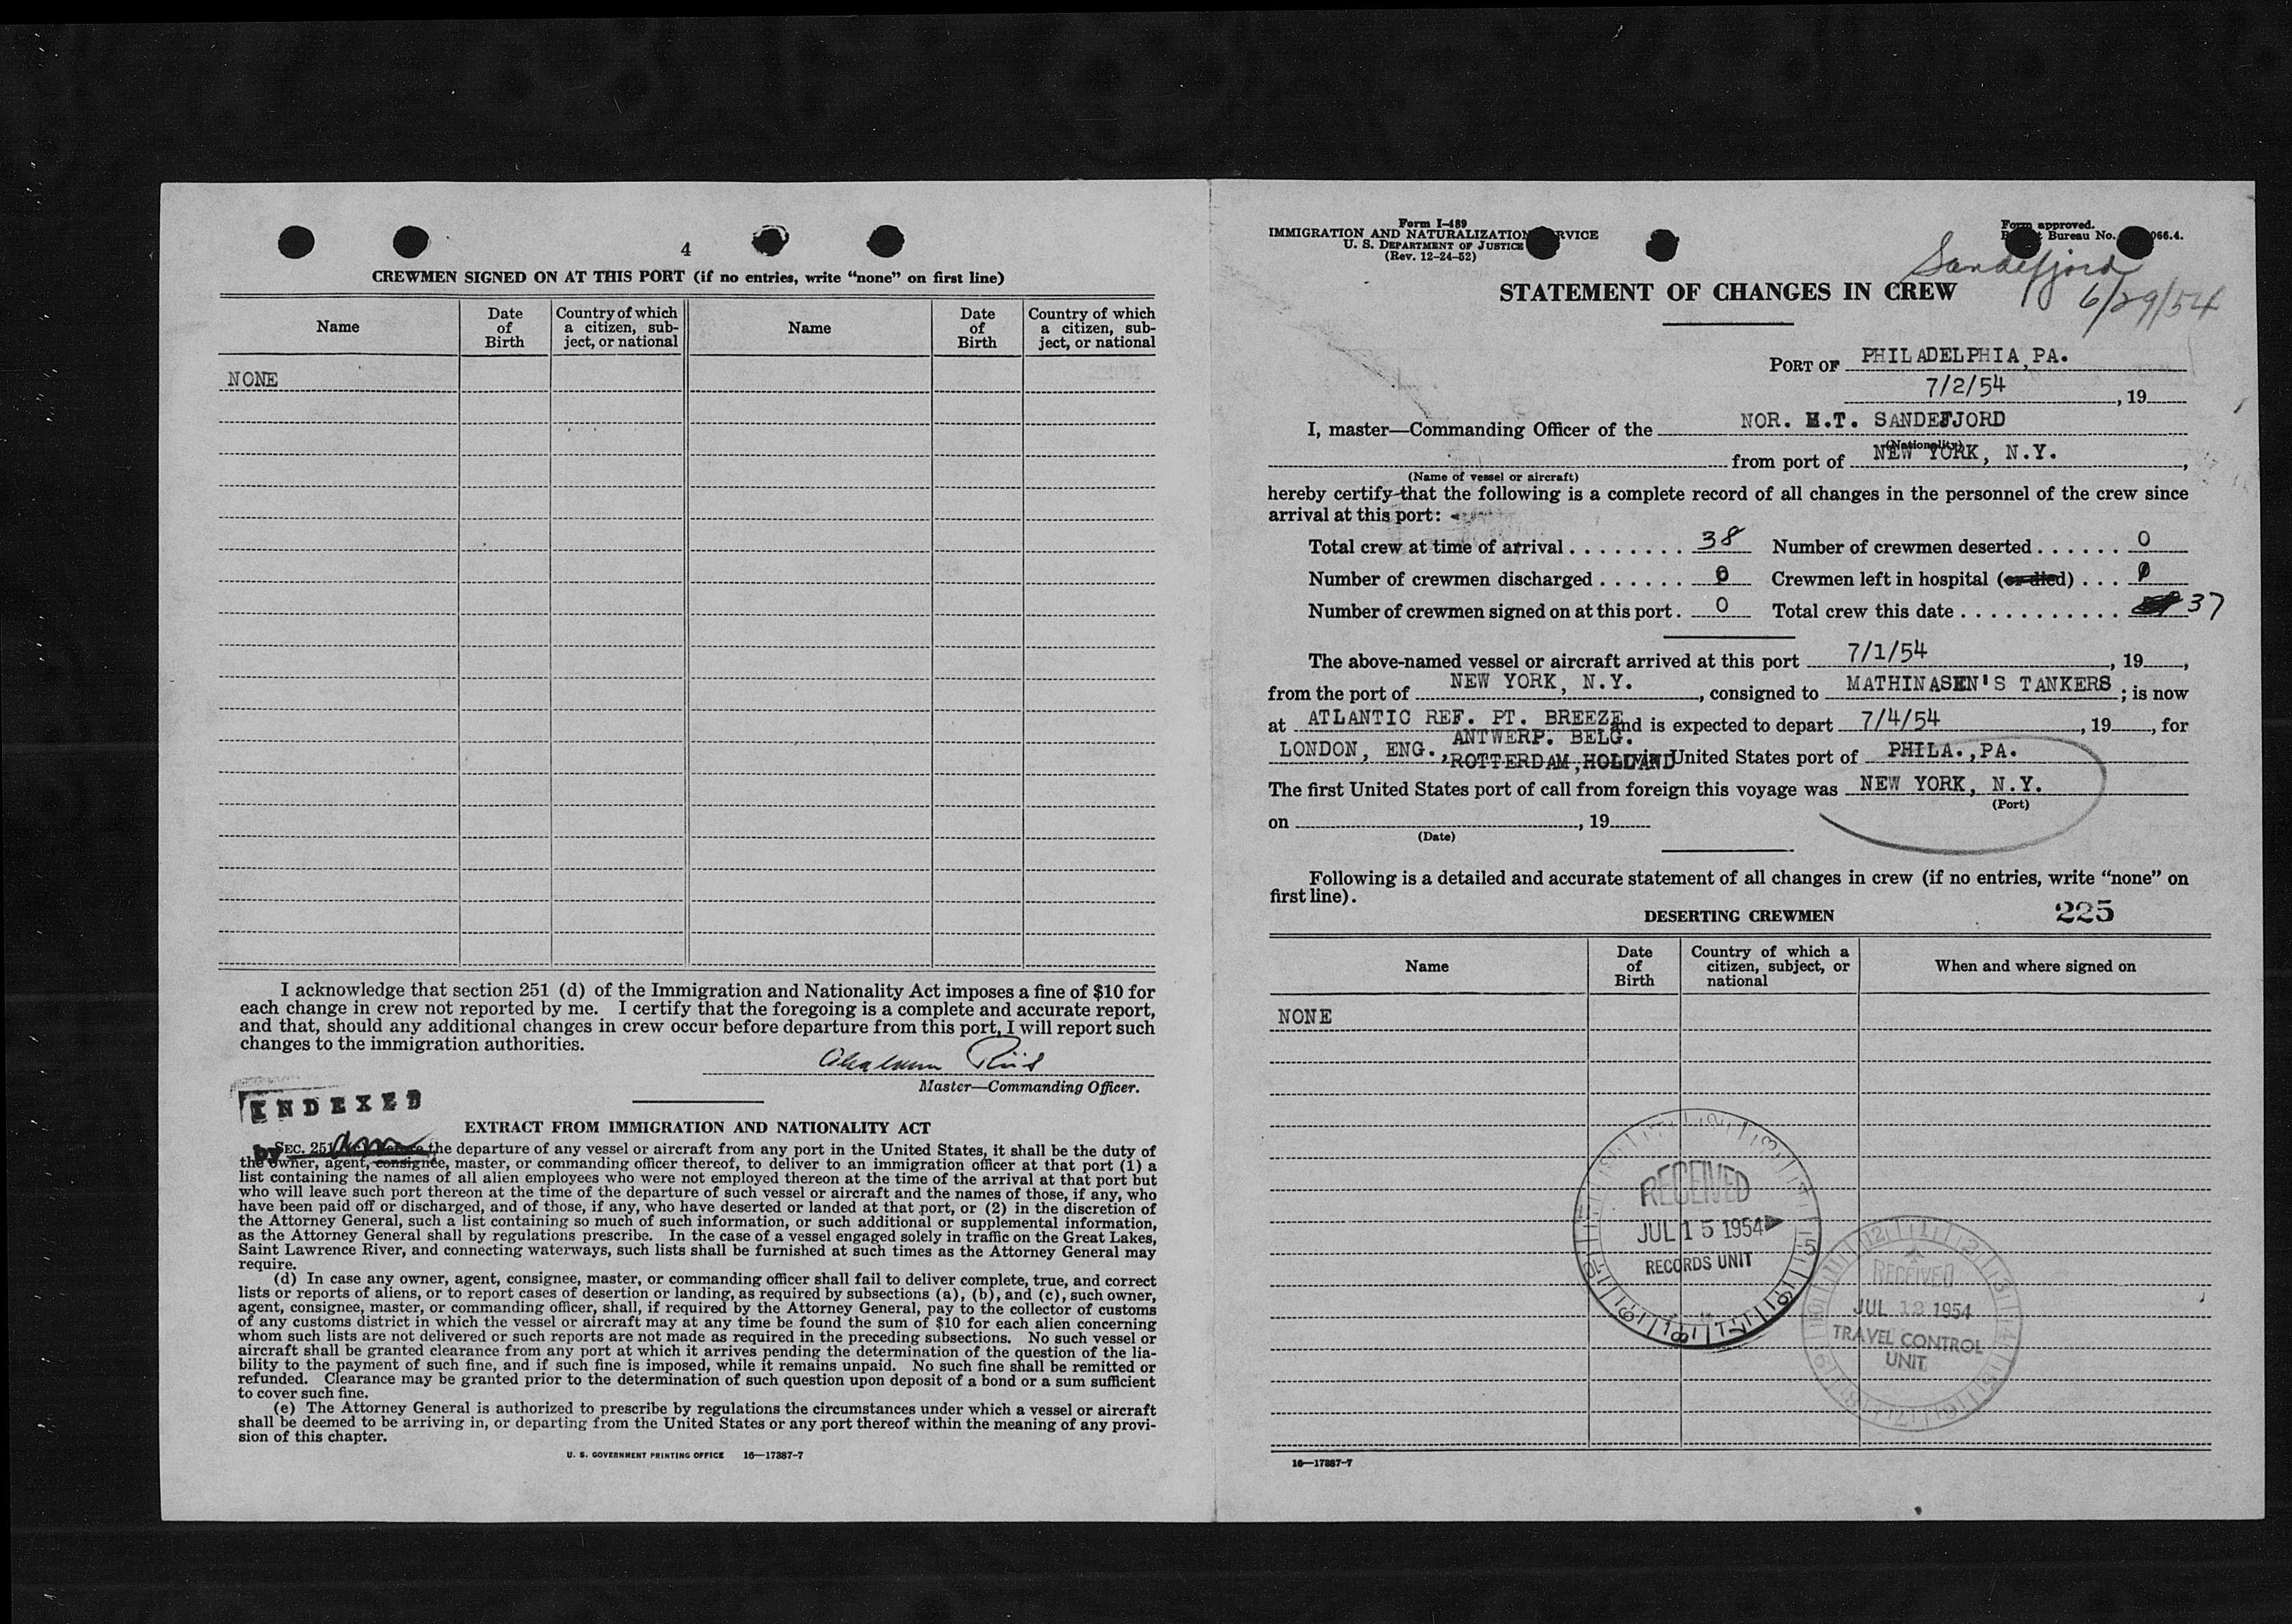 4
CREWMEN SIGNED ON AT THIS PORT (if no entries, write “none” on first line)
Name
Date of Birth
Country of which a citizen, sub-ject, or national
Name
Date of Birth
Country of which a citizen, sub-ject, or national
NONE
I acknowledge that section 251 (d) of the Immigration and Nationality Act imposes a fine of $10 for
each change in crew not reported by me. I certify that the foregoing is a complete and accurate report,
and that, should any additional changes in crew occur before departure from this port, I will report such
changes to the immigration authorities.
Master—Commanding Officer.
INDEXED
EXTRACT FROM IMMIGRATION AND NATIONALITY ACT
by SEC. 251 the departure of any vessel or aircraft from any port in the United States, it shall be the duty of
the owner, agent, consignee, master, or commanding officer thereof, to deliver to an immigration officer at that port (1) a
list containing the names of all alien employees who were not employed thereon at the time of the arrival at that port but
who will leave such port thereon at the time of the departure of such vessel or aircraft and the names of those, if any, who
have been paid off or discharged, and of those, if any, who have deserted or landed at that port, or (2) in the discretion of
the Attorney General, such a list containing so much of such information, or such additional or supplemental information,
as the Attorney General shall by regulations prescribe. In the case of a vessel engaged solely in traffic on the Great Lakes,
Saint Lawrence River, and connecting waterways, such lists shall be furnished at such times as the Attorney General may
require.
(d) In case any owner, agent, consignee, master, or commanding officer shall fail to deliver complete, true, and correct
lists or reports of aliens, or to report cases of desertion or landing, as required by subsections (a), (b), and (c), such owner,
agent, consignee, master, or commanding officer, shall, if required by the Attorney General, pay to the collector of customs
of any customs district in which the vessel or aircraft may at any time be found the sum of $10 for each alien concerning
whom such lists are not delivered or such reports are not made as required in the preceding subsections. No such vessel or
aircraft shall be granted clearance from any port at which it arrives pending the determination of the question of the lia-
bility to the payment of such fine, and if such fine is imposed, while it remains unpaid. No such fine shall be remitted or
refunded. Clearance may be granted prior to the determination of such question upon deposit of a bond or a sum sufficient
to cover such fine.
(e) The Attorney General is authorized to prescribe by regulations the circumstances under which a vessel or aircraft
shall be deemed to be arriving in, or departing from the United States or any port thereof within the meaning of any provi-
sion of this chapter.
U. S. GOVERNMENT PRINTING OFFICE 16—17387-7
Form I-489
IMMIGRATION AND NATURALIZATION SERVICE
U. S. DEPARTMENT OF JUSTICE
(Rev. 12-24-52)
Form approved.
Bureau No. 066.4.
Sandefjord
6/29/54
STATEMENT OF CHANGES IN CREW
PORT OF PHILADELPHIA, PA.
7/2/54 , 19
I, master—Commanding Officer of the NOR. M.T. SANDEFJORD
(Nationality)
from port of NEW YORK, N.Y. ,
(Name of vessel or aircraft)
hereby certify that the following is a complete record of all changes in the personnel of the crew since
arrival at this port:
Total crew at time of arrival . . . . . . . . 38 Number of crewmen deserted . . . . . . 0
Number of crewmen discharged . . . . . . 0 Crewmen left in hospital (or died) . . .
Number of crewmen signed on at this port . 0 Total crew this date . . . . . . . . . . . 37
The above-named vessel or aircraft arrived at this port 7/1/54 , 19 ,
from the port of NEW YORK, N.Y. , consigned to MATHINASEN'S TANKERS ; is now
at ATLANTIC REF. PT. BREEZE and is expected to depart 7/4/54 , 19 , for
ANTWERP. BELG.
LONDON, ENG., ROTTERDAM, HOLLAND via United States port of PHILA., PA.
The first United States port of call from foreign this voyage was NEW YORK, N.Y.
(Port)
on , 19
(Date)
Following is a detailed and accurate statement of all changes in crew (if no entries, write “none” on
first line).
DESERTING CREWMEN
225
Name
Date of Birth
Country of which a citizen, subject, or national
When and where signed on
NONE
RECEIVED
JUL 15 1954
RECORDS UNIT
RECEIVED
JUL 12 1954
TRAVEL CONTROL
UNIT
16—17387-7